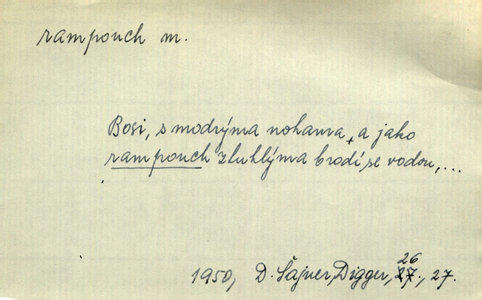 rampouch m.
Bosi, s modrýma nohama, a jako
rampouch zluhlýma brodí se vodou, ...
26
1950, D. Šajner, Digger, 27., 27.